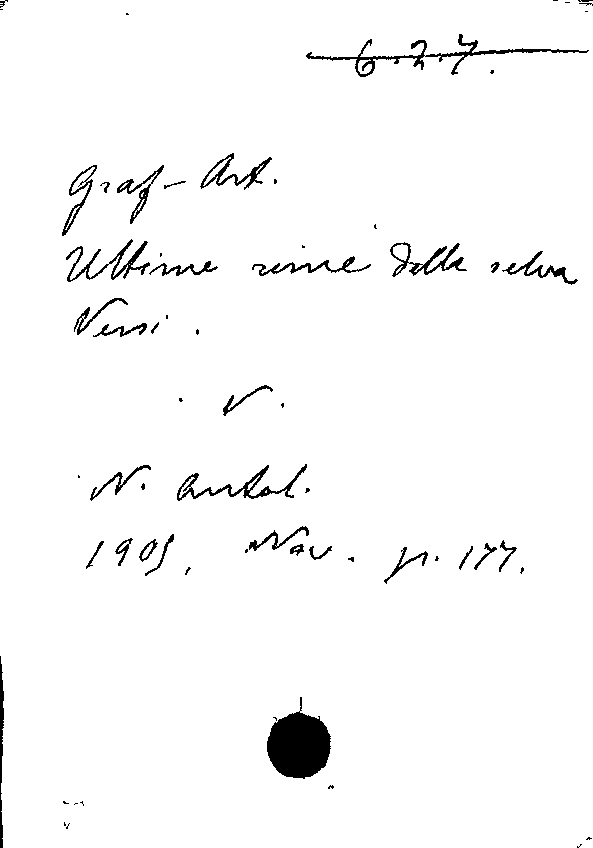 6.2.7.
Graf - Art.
Ultime rime della selva
Versi.
V.
N. Antol.
1905, Nov. p. 177.